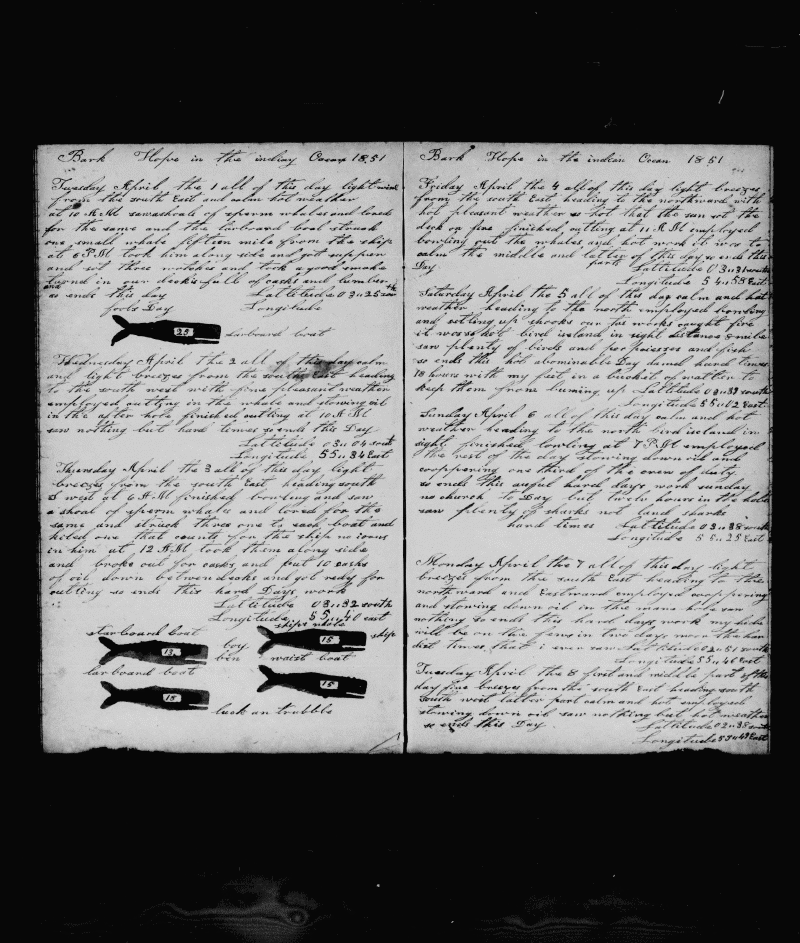 Bark Hope in the indian Ocean 1851
Tuesday April the 1 all of this day light wind
from the south East and calm hot weather
at 10 A M saw shoals of sperm whales and lored
for the same and the larboard boat struck
one small whale fifteen mile from the ship
at 6 P M took him along side and got supper
and sit three notches and took a good smoke
turned in our decks full of casks and lumber
so ends this day Lattitude 03 25 sou
fools Day Longitude
23 larboard boat
Wednesday April the 2 all of this day calm
and light breezes from the south East heading
to the south west with fine pleasant weather
employed cutting in the whale and stowing oil
in the after hole finished cutting at 10 A M
saw nothing but hard times so ends this Day
Lattitude 03 04 south
Longitude 55 34 East
Thursday April the 3 all of this day light
breezes from the south East heading south
S west at 6 A M finished bowling and saw
a shoal of sperm whales and lored for the
same and struck three one to each boat and
kiled one that counts for the ship no irons
in him at 12 A M took them along side
and broke out for casks and put 10 casks
of oil down between decks and got redy for
cutting so ends this hard Days work
Lattitude 03 32 south
Longitude 55 40 east
starboard boat ships whale
13 boy 15 ship
larboard boat ben waist boat
18 15
luck an trubble
Bark Hope in the indian Ocean 1851
Friday April the 4 all of this day light breezes
from the south East heading to the northward with
hot pleasant weather so hot that the sun sot the
deck on fire finished cutting at 11 A M employed
bowling out the whales and hot work it was to
calm the middle and latter part of this day so ends this
Day Lattitude 03 31 south
Longitude 54 58 East
Saturday April the 5 all of this day calm and hot
weather heading to the north employed bowling
and setting up shooks our for works caught fire
it was so hot bird island in sight distance mile
saw plenty of birds and porpoises and fish
so ends this hot abominable Day hard times
18 hours with my feet in a bucket of watter to
keep them from burning up Lattitude 03 39 south
Longitude 55 02 East
Sunday April 6 all of this day calm and hot
weather heading to the north bird island in
sight finished bowling at 7 P M employed
the rest of the day stowing down oil and
coopering one third of the crew of duty
so ends this awful hard days work sunday
no church to Day but twelv hours in the hole
saw plenty of sharks not land sharks
hard times Lattitude 03 38 south
Longitude 55 25 East
Monday April the 7 all of this day light
breezes from the south East heading to the
northward and Eastward employed coopering
and stowing down oil in the main hole saw
nothing so ends this hard days work my hide
will be on the fens in two days more the har
dist times that i ever saw Lattitude 02 51 south
Longitude 55 40 East
Tuesday April the 8 first and middle part of the
day fine breezes from the south East heading south
South west latter part calm and hot employed
stowing down oil saw nothing but hot weather
so ends this Day Lattitude 02 38 south
Longitude 55 49 East